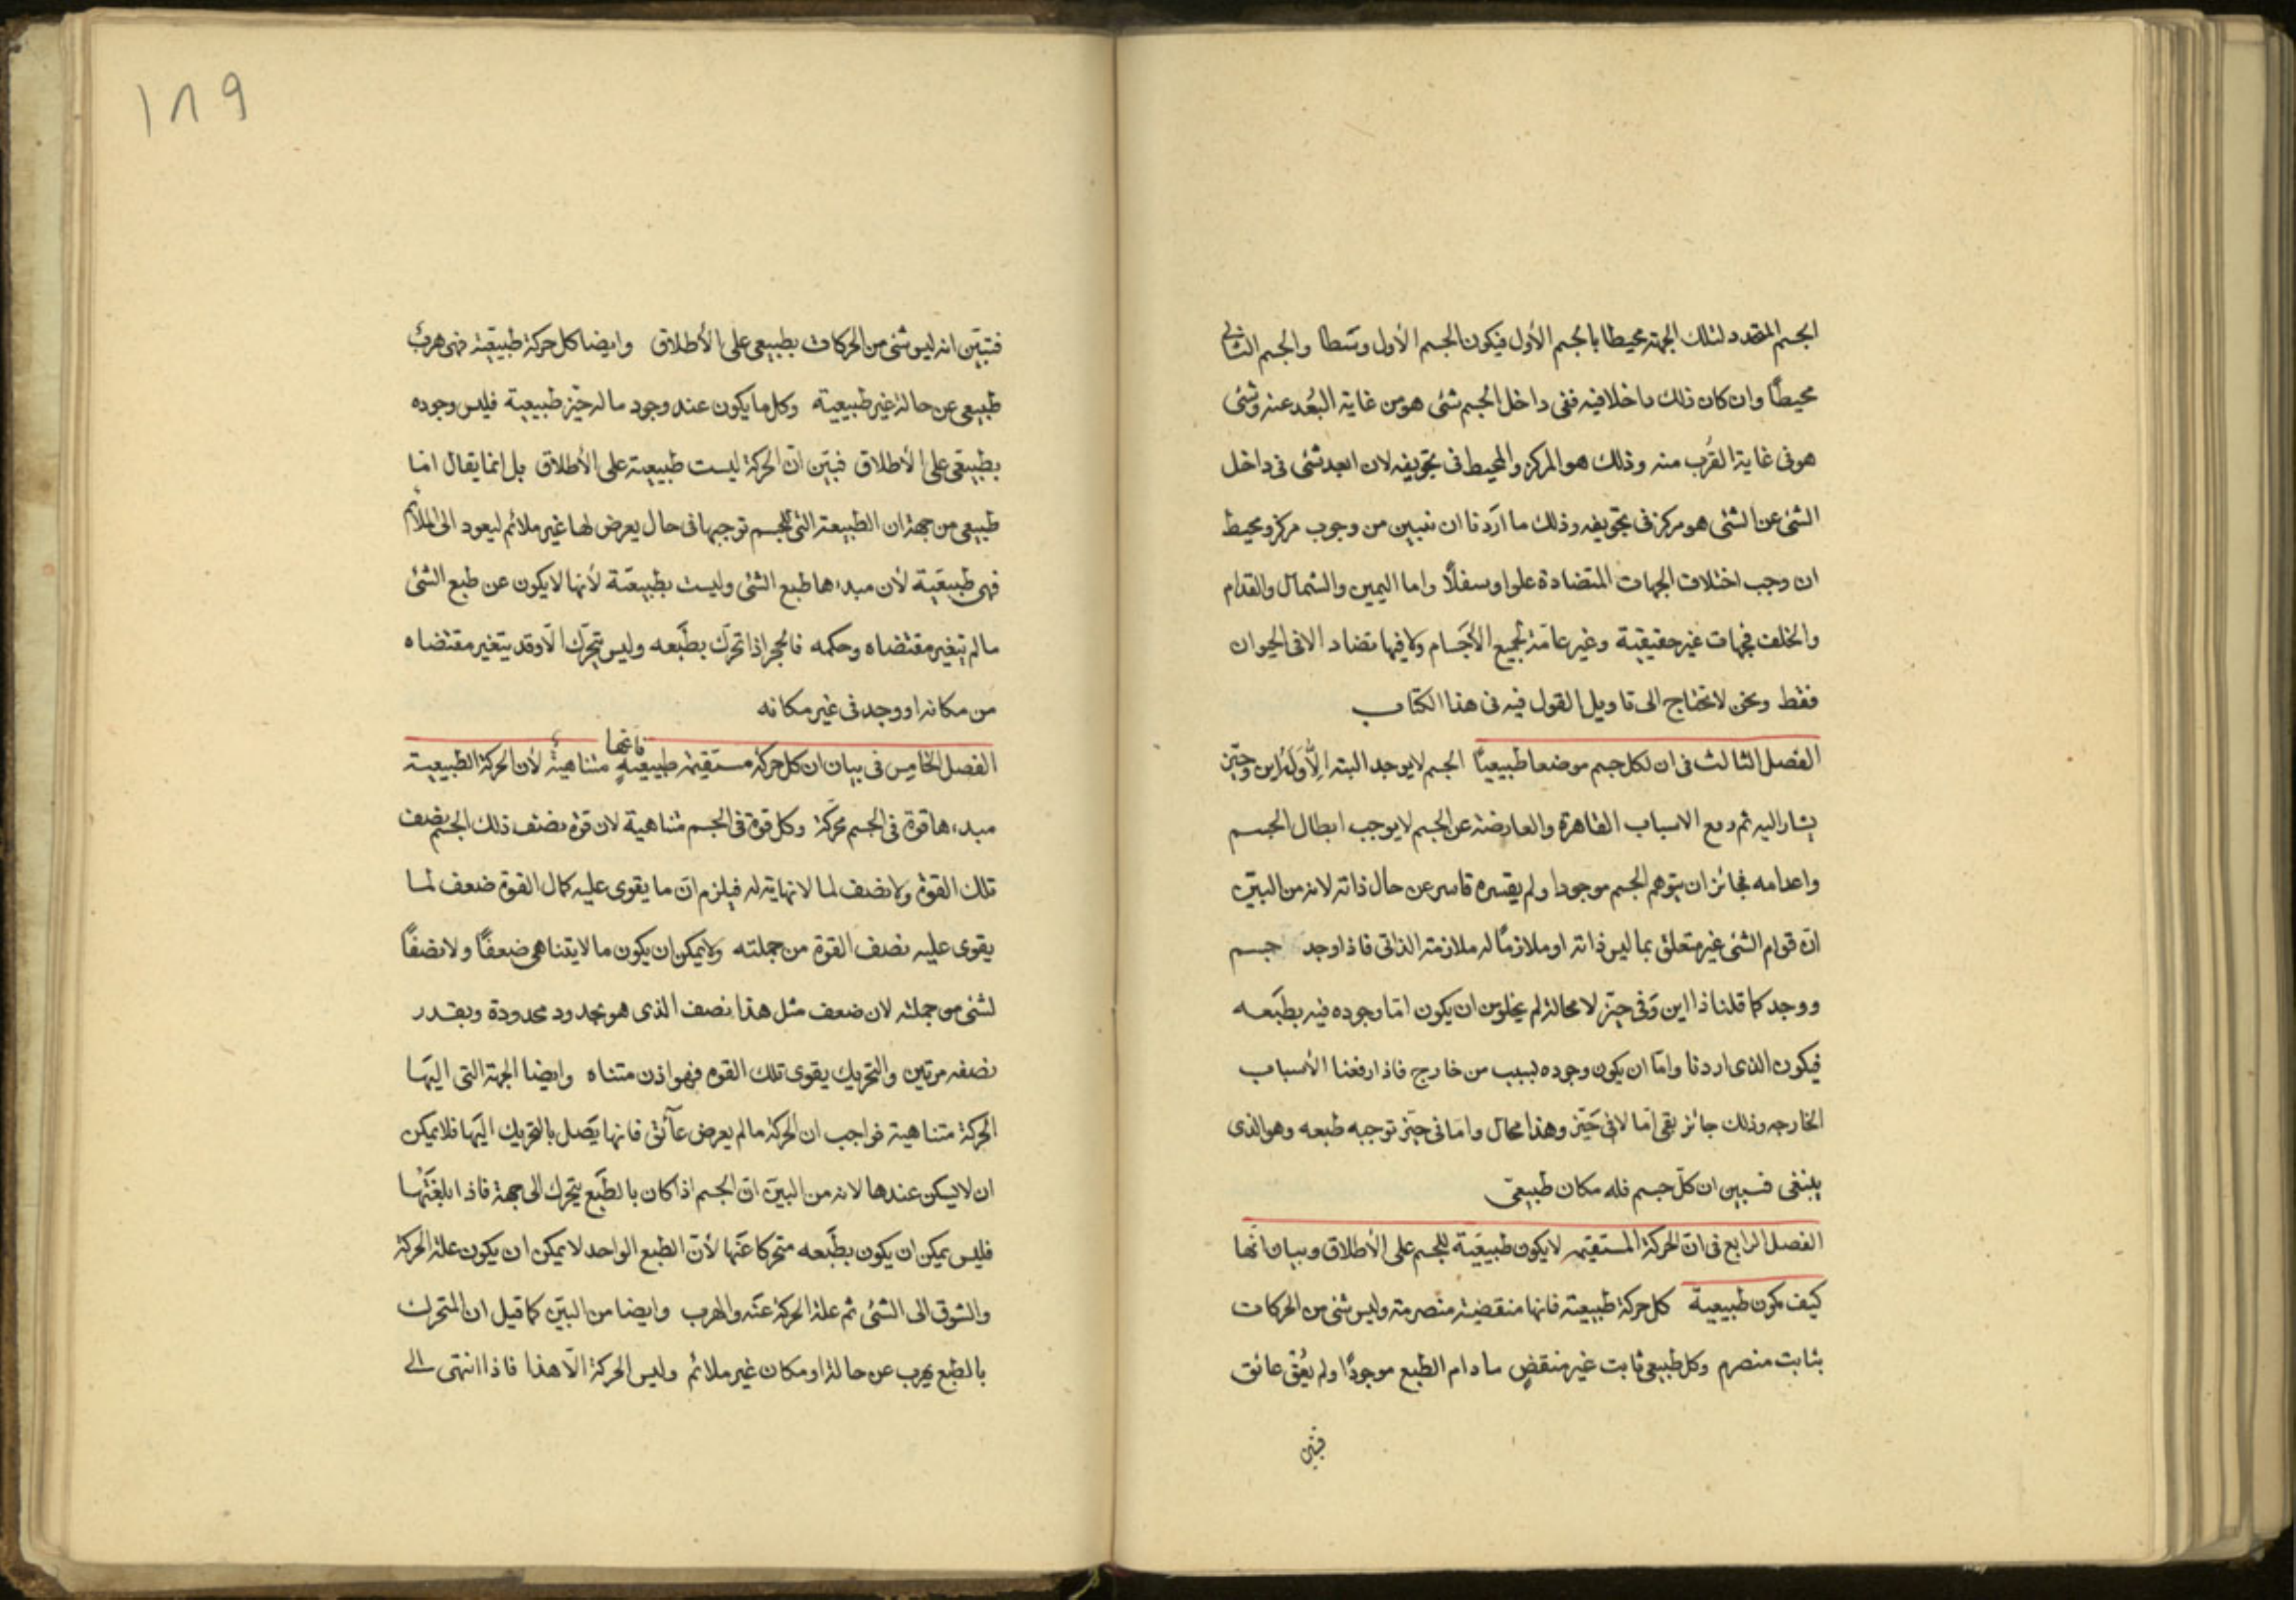 الجسم المتحدد لتلك الجهة محيطا بالجسم الأول فيكون الجسم الأول وسَطا والجسم الثاني
محيطًا وان كان ذلك داخلا فيه ففى داخل الجسم شئ هو من غاية البُعد عنه وشئ
هو فى غاية القُرب منه وذلك هو المركز والمحيط فى تجويفه لان ابعد شئ فى داخل
الشئ عن الشئ هو مركز فى تجويفه وذلك ما اَردنا ان نبيين من وجوب مركز ومحيط
ان وجب اختلاف الجهات المتضادة علوا وسفلًا واما اليمين والشمال والقدام
والخلف فجهات غير حقيقية وغير عامّة لجميع الأجَسام ولا فيها تضاد الا فى الحيوان
فقط ونحن لا نحتاج الى تاويل القول فيه فى هذا الكتاب
الفصل الثالث فى ان لكل جسم موضعا طبيعيًا الجسم لا يوجد البتة الّا وَلَهُ اين وحيّز
يشار اليه ثم رفع الاسباب القاهرة والعارضة عن الجسم لا يوجب ابطال الجسم
واعدامه فجائز ان يتوهم الجسم موجودا ولم يقسره قاسر عن حال ذاته لانه من البيّن
انّ قوام الشئ غير متعلق بما ليس ذاته او ملازمًا له ملازمته الذاتى فاذا وجد جسم
ووجد كما قلنا ذا اين وَفى حيّز لا محالة لم يخلو من ان يكون امّا وجوده فيه بطبَعه
فيكون الذى اردنا وامّا ان يكون وجوده لسبب من خارج فاذا رفعنا الأسباب
الخارجه وذلك جائز بقى امّا لا فى حَيّز وهذا محال وامّا فى حيّز توجبه طبعه وهو الذى
ينبغى فسبين ان كلّ جسم فله مكان طبيعىّ
الفصل الرابع فى انّ الحركة المستقيمه لا يكون طبيعيَة للجسم على الأطلاق وبيان انّها
كيف تكون طبيعية كل حركة طبيعته فانها منقضية منصرمة وليس شئ من الحركات
بثابت منصرم وكل طبيعى ثابت غير منقضٍ ما دام الطبع موجودًا ولم يعُق عائق
فتبين
١٨٩
فتبيّن انه ليس شئ من الحركات بطبيعى على الأطلاق وايضا كل حركة طبيعيّة فهى هربٌ
طبيعى عن حالة غير طبيعية وكل ما يكون عند وجود ماله حيّز طبيعية فليس وجوده
بطبيعَى على الأطلاق فبيّن انّ الحركة ليست طبيعية على الأطلاق بل انما يقال انها
طبيعى من جهة ان الطبيعة التى للجسم توجبها فى حال يعرض لها غير ملائم ليعود الى الملائم
فهى طبيعَية لأن مبدءها طبع الشئ وليست بطبيعيّة لأنها لا يكون عن طبع الشئ
ما لم يتغير مقتضاه وحكمه فالحجر اذا تحرّك بطبَعه وليس يتحرّك الّا وقد يتغير مقتضاه
من مكانه او وجد فى غير مكانه
الفصل الخامس فى بيان ان كل حركة مستَقيمة طبيعيةٍ فانّها متناهيةٌ لأن الحركة الطبيعية
مبدءها قوة فى الجسم محرّكة وكل قوة فى الجسم متناهية لان قوة نصف ذلك الجسم نصف
تلك القوة ولا نصف لما لا نهاية له فيلزم انّ ما يقوى عليه كمال القوة ضعف لما
يقوى عليه نصف القوة من جملته ولا يمكن ان يكون ما لا يتناهى ضعفًا ولا نصفًا
لشئ من جملته لان ضعف مثل هذا نصف الذى هو بحدود محدودة وبقدر
نصفه مرتين والتحريك يقوى تلك القوه فهو اذن متناه وايضا الجهة التى اليهَا
الحركة متناهية فواجب ان الحركة ما لم يعرض عآئق فانها يتَصل بالتحريك اليهَا فلا يمكن
ان لا يسكن عندها لانه من البيّن انّ الجسم اذا كان بالطبَع يتحرك الى جهة فاذا بلغَتهُا
فليس يمكن ان يكون بطبَعه متحركا عنَها لأنّ الطبع الواحد لا يمكن ان يكون علة الحركة
والشوق الى الشئ ثم علة الحركة عنَه والهرب وايضا من البيّن كما قيل ان المتحرك
بالطبع يهرب عن حالة او مكان غير ملائم وليس الحركة الّا هذا فاذا انتهى الى